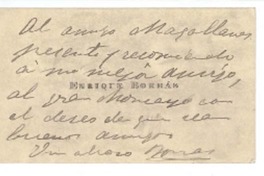 Al amigo Magallanes
presento y recomiendo
á mi mejor amigo,
ENRIQUE BORRÁS
al gran Moncayo con
el deseo de que sean
buenos amigos
Un abrazo Borrás